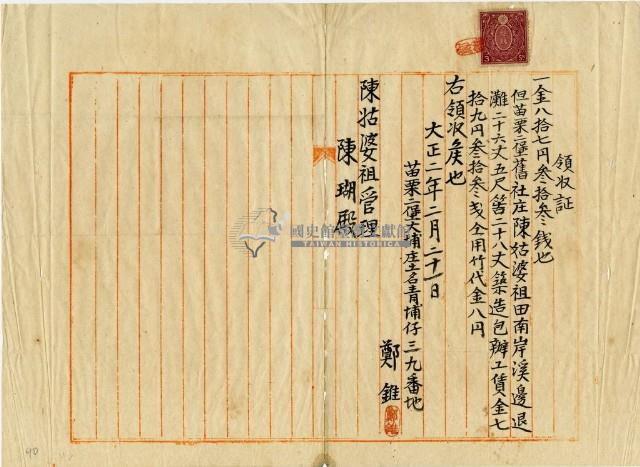 領収証
一金八拾七円叁拾叁銭也
但苗栗二堡舊社庄陳姑婆祖田南岸溪邊退
灘二十六丈五尺笞二十八丈築造包辦工賃金七
拾九円叁拾叁戔仝用竹代金八円
右領収候也
大正二年二月二十一日
苗栗二堡大埔庄土名青埔仔三九番地
鄭錐
陳姑婆祖管理
陳瑚殿
國史館臺灣文獻館
TAIWAN HISTORICA
40